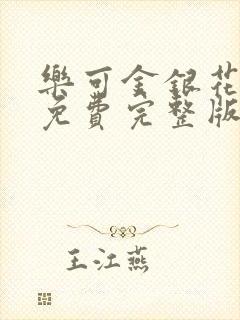 樂可金銀花
免費完整版
王江燕